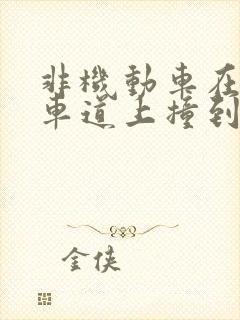 非機動車在
車道上撞到
金俠